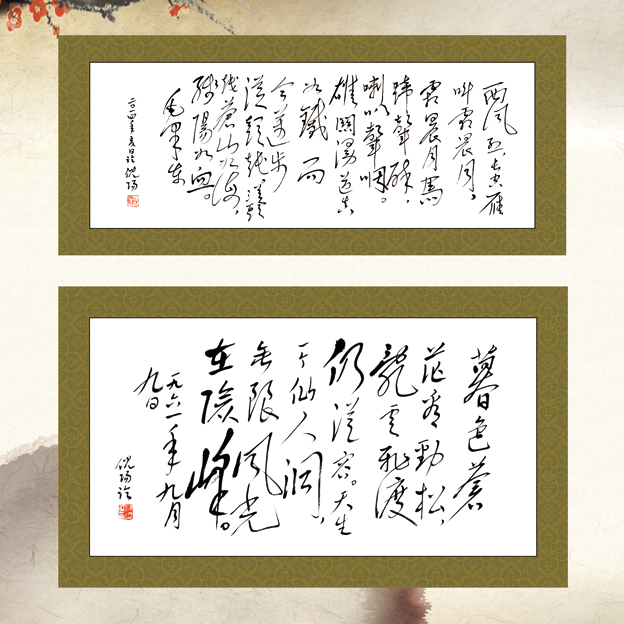 西风烈長空雁
叫霜晨月,
霜晨月馬
蹄聲碎,
喇叭聲咽。
雄關漫道真
如鐵 而
今邁步
從頭越從頭
越蒼山如海,
殘陽如血。
毛澤東
暮色蒼
茫看勁松,
亂雲飛渡
仍從容。天生
一个仙人洞,
無限風光
在險峰。
一九六一年九月
九日